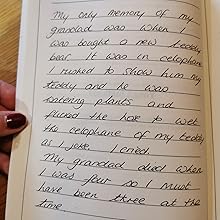 My only memory of my
grandad was when I
was bought a new teddy
bear. It was in celophane
I rushed to show him my
teddy and he was
watering plants and
flicked the hose to wet
the celophane of my teddy
as a joke. I cried.
My grandad died when
I was four so I must
have been three at the
time